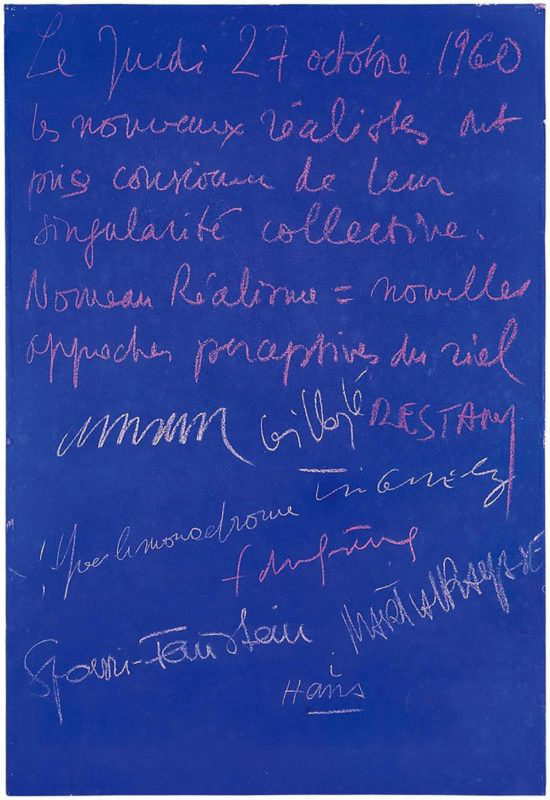 Le Jeudi 27 octobre 1960
les nouveaux réalistes ont
pris conscience de leur
singularité collective.
Nouveau Réalisme = nouvelles
approches perceptives du réel
arman Villeglé RESTANY
Yves le monochrome Tinguely
f dufrêne
Spoerri-Feinstein MARTIALRAYSSE
Hains